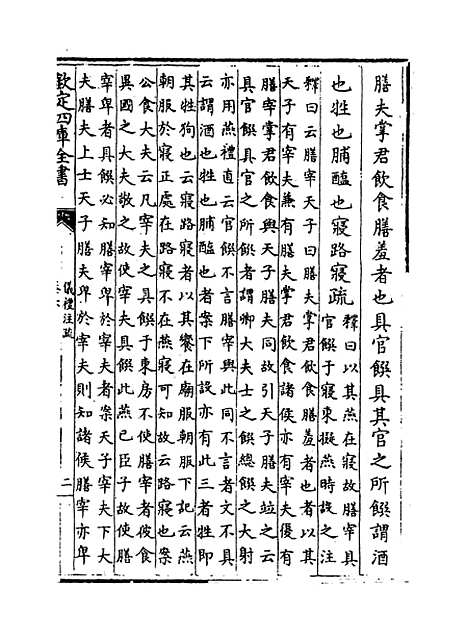 膳夫掌君飲食膳羞者也具官饌具其官之所饌謂酒
也牲也脯醢也寢路寢疏釋曰以其燕在寢故膳宰具官饌于寢東擬燕時設之注
釋曰云膳宰天子曰膳夫掌君飲食膳羞者也者以其
天子有宰夫兼有膳夫掌君飲食諸侯亦有宰夫復有
膳宰掌君飲食與天子膳夫同故引天子膳夫並之云
具官饌具官之所饌者謂卿大夫士之饌總饌之大射
亦用燕禮直云官饌不言膳宰與此同不言者文不具
云謂酒也牲也脯醢也者案下所設亦有此三者牲即
其牲狗也云寢路寢者以其饗在廟服朝服下記云燕
朝服於寢正處在路寢不在燕寢可知故云路寢也案
公食大夫云凡宰夫之具饌于東房不使膳宰者彼食
異國之大夫敬之故使宰夫具饌此燕已臣子故使膳
宰卑者具饌必知膳宰卑於宰夫者案天子宰夫下大
夫膳夫上士天子膳夫卑於宰夫則知諸侯膳宰亦卑
欽定四庫全書
儀禮注疏
卷六
二